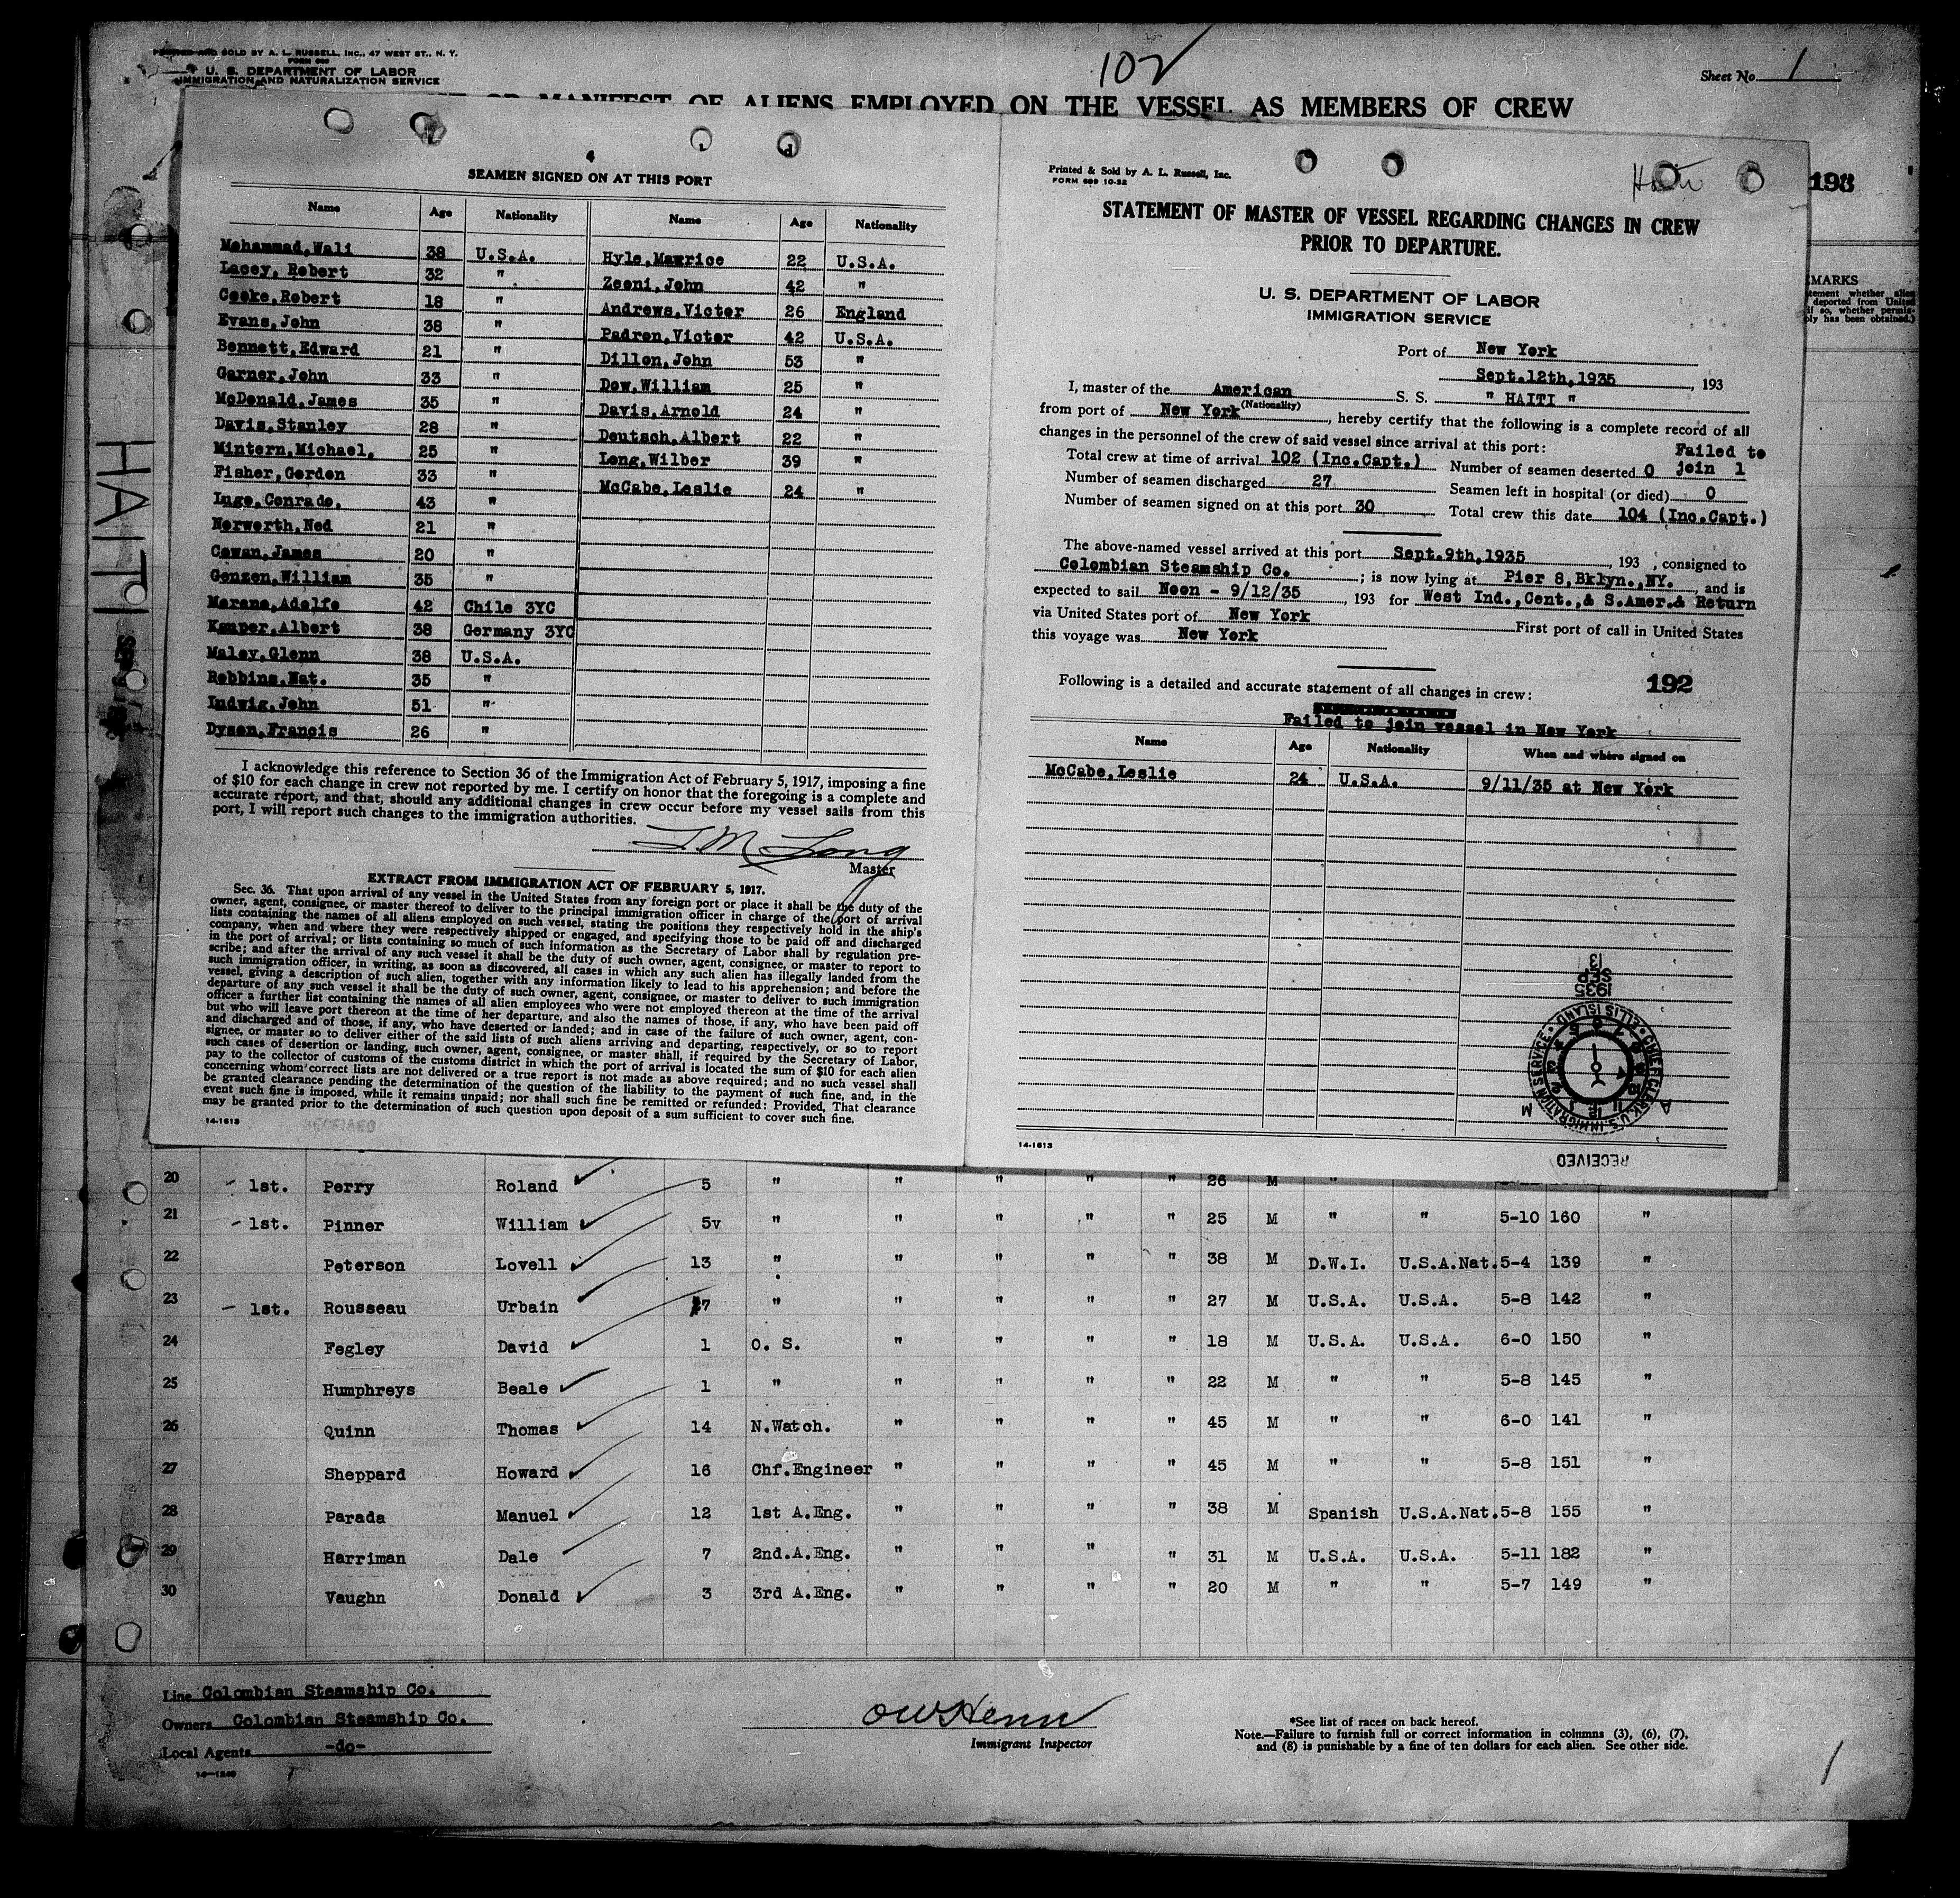 PRINTED AND SOLD BY A. L. RUSSELL, INC., 47 WEST ST., N. Y.
FORM 689
U. S. DEPARTMENT OF LABOR
IMMIGRATION AND NATURALIZATION SERVICE
102
Sheet No. 1
OR MANIFEST OF ALIENS EMPLOYED ON THE VESSEL AS MEMBERS OF CREW
193
MARKS
tement whether alien
deported from United
if so, whether permis-
ply has been obtained.)
HAITI
4
SEAMEN SIGNED ON AT THIS PORT
Name Age Nationality Name Age Nationality
Mohammad,Wali 38 U.S.A. Hyle,Maurice 22 U.S.A.
Lacey, Robert 32 " Zeeni,John 42 "
Cooke,Robert 18 " Andrews,Victor 26 England
Evans,John 38 " Padron,Victor 42 U.S.A.
Bennett,Edward 21 " Dillon,John 53 "
Garner,John 33 " Dow,William 25 "
McDonald,James 35 " Davis,Arnold 24 "
Davis,Stanley 28 " Deutsch,Albert 22 "
Mintern,Michael, 25 " Long,Wilber 39 "
Fisher,Gordon 33 " McCabe,Leslie 24 "
Inge,Conrade, 43 "
Norworth,Ned 21 "
Cowan,James 20 "
Genzen,William 35 "
Marane,Adolfo 42 Chile 3YC
Kemper,Albert 38 Germany 3YC
Maley,Glenn 38 U.S.A.
Robbins,Nat. 35 "
Indwig,John 51 "
Dysen,Francis 26 "
I acknowledge this reference to Section 36 of the Immigration Act of February 5, 1917, imposing a fine
of $10 for each change in crew not reported by me. I certify on honor that the foregoing is a complete and
accurate report, and that, should any additional changes in crew occur before my vessel sails from this
port, I will report such changes to the immigration authorities.
T M Long
Master
EXTRACT FROM IMMIGRATION ACT OF FEBRUARY 5, 1917.
Sec. 36. That upon arrival of any vessel in the United States from any foreign port or place it shall be the duty of the
owner, agent, consignee, or master thereof to deliver to the principal immigration officer in charge of the port of arrival
lists containing the names of all aliens employed on such vessel, stating the positions they respectively hold in the ship's
company, when and where they were respectively shipped or engaged, and specifying those to be paid off and discharged
in the port of arrival; or lists containing so much of such information as the Secretary of Labor shall by regulation pre-
scribe; and after the arrival of any such vessel it shall be the duty of such owner, agent, consignee, or master to report to
such immigration officer, in writing, as soon as discovered, all cases in which any such alien has illegally landed from the
vessel, giving a description of such alien, together with any information likely to lead to his apprehension; and before the
departure of any such vessel it shall be the duty of such owner, agent, consignee, or master to deliver to such immigration
officer a further list containing the names of all alien employees who were not employed thereon at the time of the arrival
but who will leave port thereon at the time of her departure, and also the names of those, if any, who have been paid off
and discharged and of those, if any, who have deserted or landed; and in case of the failure of such owner, agent, con-
signee, or master so to deliver either of the said lists of such aliens arriving and departing, respectively, or so to report
such cases of desertion or landing, such owner, agent, consignee, or master shall, if required by the Secretary of Labor,
pay to the collector of customs of the customs district in which the port of arrival is located the sum of $10 for each alien
concerning whom correct lists are not delivered or a true report is not made as above required; and no such vessel shall
be granted clearance pending the determination of the question of the liability to the payment of such fine, and, in the
event such fine is imposed, while it remains unpaid; nor shall such fine be remitted or refunded: Provided, That clearance
may be granted prior to the determination of such question upon deposit of a sum sufficient to cover such fine.
14-1613
RECEIVED
Printed & Sold by A. L. Russell, Inc.
FORM 689 10-32
Haiti
STATEMENT OF MASTER OF VESSEL REGARDING CHANGES IN CREW
PRIOR TO DEPARTURE.
U. S. DEPARTMENT OF LABOR
IMMIGRATION SERVICE
Port of New York
Sept.12th,1935, 193
I, master of the American S. S. " HAITI "
(Nationality)
from port of New York, hereby certify that the following is a complete record of all
changes in the personnel of the crew of said vessel since arrival at this port: Failed to
Total crew at time of arrival 102 (Inc.Capt.) Number of seamen deserted 0 join 1
Number of seamen discharged 27 Seamen left in hospital (or died) 0
Number of seamen signed on at this port 30 Total crew this date 104 (Inc.Capt.)
The above-named vessel arrived at this port Sept.9th,1935, 193 , consigned to
Colombian Steamship Co. ; is now lying at Pier 8,Bklyn.,NY. and is
expected to sail Noon - 9/12/35, 193 for West Ind.,Cent.,& S.Amer.& Return
via United States port of New York First port of call in United States
this voyage was New York
192
Following is a detailed and accurate statement of all changes in crew:
Failed to join vessel in New York
Name Age Nationality When and where signed on
McCabe,Leslie 24 U.S.A. 9/11/35 at New York
13
SEP
1935
CHIEF CLERK U.S. IMMIGRATION SERVICE • ELLIS ISLAND
A M
RECEIVED
14-1613
20 - 1st. Perry Roland 5 " " " " " 26 M "
21 - 1st. Pinner William 5v " " " " " 25 M " " 5-10 160 "
22 Peterson Lovell 13 " " " " " 38 M D.W.I. U.S.A.Nat. 5-4 139 "
23 - 1st. Rousseau Urbain 7 " " " " " 27 M U.S.A. U.S.A. 5-8 142 "
24 Fegley David 1 O. S. " " " " 18 M U.S.A. U.S.A. 6-0 150 "
25 Humphreys Beale 1 " " " " " 22 M " " 5-8 145 "
26 Quinn Thomas 14 N.Watch. " " " " 45 M " " 6-0 141 "
27 Sheppard Howard 16 Chf.Engineer " " " " 45 M " " 5-8 151 "
28 Parada Manuel 12 1st A.Eng. " " " " 38 M Spanish U.S.A.Nat. 5-8 155 "
29 Harriman Dale 7 2nd.A.Eng. " " " " 31 M U.S.A. U.S.A. 5-11 182 "
30 Vaughn Donald 3 3rd A.Eng. " " " " 20 M " " 5-7 149 "
Line Colombian Steamship Co.
Owners Colombian Steamship Co.
Local Agents -do-
14-1240
OW Henn
Immigrant Inspector
*See list of races on back hereof.
Note.—Failure to furnish full or correct information in columns (3), (6), (7),
and (8) is punishable by a fine of ten dollars for each alien. See other side.
1